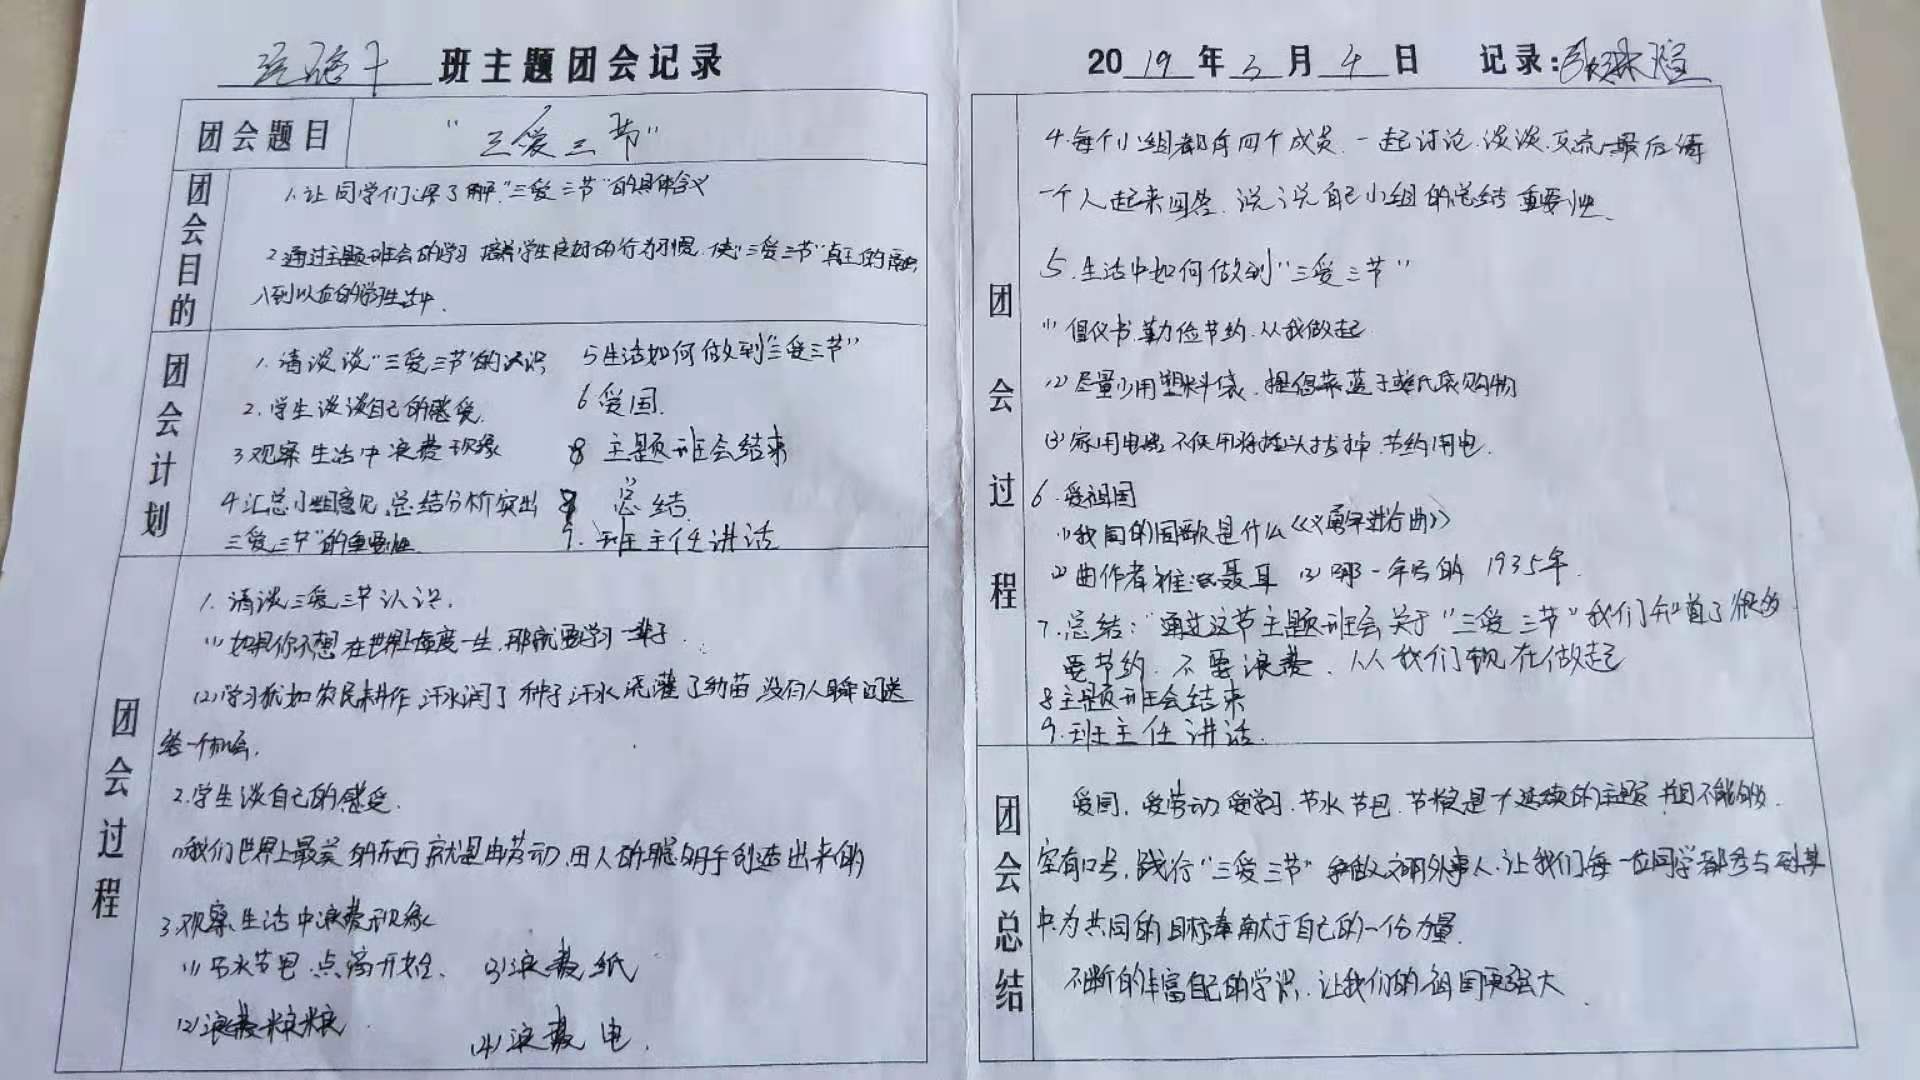 班主题团会记录
团会题目
"三爱三节"
团会目的
1.让同学们了解"三爱三节"的具体含义
2通过主题班会的学习 培养学生良好的行为习惯.使"三爱三节"真正的融
入到以后的学习生活中.
团会计划
1.请谈谈"三爱三节"的认识
2.学生谈谈自己的感受.
3观察生活中浪费现象
4汇总小组意见,总结分析突出
三爱三节"的重要性
5生活如何做到"三爱三节"
6爱国.
8 主题班会结束
总结
9.班主任讲话
团会过程
1.请谈三爱三节认识.
(1)如果你不想在世界上虚度一生,那就要学习一辈子.
(2)学习犹如农民耕作,汗水润了种子汗水浇灌了幼苗 没有人瞬间送
给一个机会.
2.学生谈自己的感受.
(1)我们世界上最美的东西就是由劳动,由人的聪明手创造出来的
3.观察生活中浪费现象
(1)节水节电.点滴开始.
(2)浪费粮粮.
(3)浪费纸
(4)浪费电.
2019年3月4日 记录:
团会过程
4.每个小组都有四个成员.一起讨论,谈谈,交流.最后请
一个人起来回答.说说自己小组的总结重要性.
5.生活中如何做到"三爱三节"
(1)倡仪书.勤俭节约.从我做起
(2)尽量少用塑料袋.提倡菜蓝子或纸袋购物
(3)家用电器不使用将插头拔掉.节约用电.
6.爱祖国
(1)我国的国歌是什么《义勇军进行曲》
(2)曲作者谁?聂耳 (3)哪一年写的 1935年.
7.总结:"通过这节主题班会关于"三爱三节"我们知道了很多
要节约.不要浪费.从我们现在做起
8主题班会结束
9.班主任讲话.
团会总结
爱国,爱劳动 爱学习.节水节电.节粮是个延续的主题 并且不能够
空有口号,践行"三爱三节"争做文明人.让我们每一位同学都参与到其
中.为共同的目标奉献于自己的一份力量.
不断的丰富自己的学识.让我们的祖国更强大.